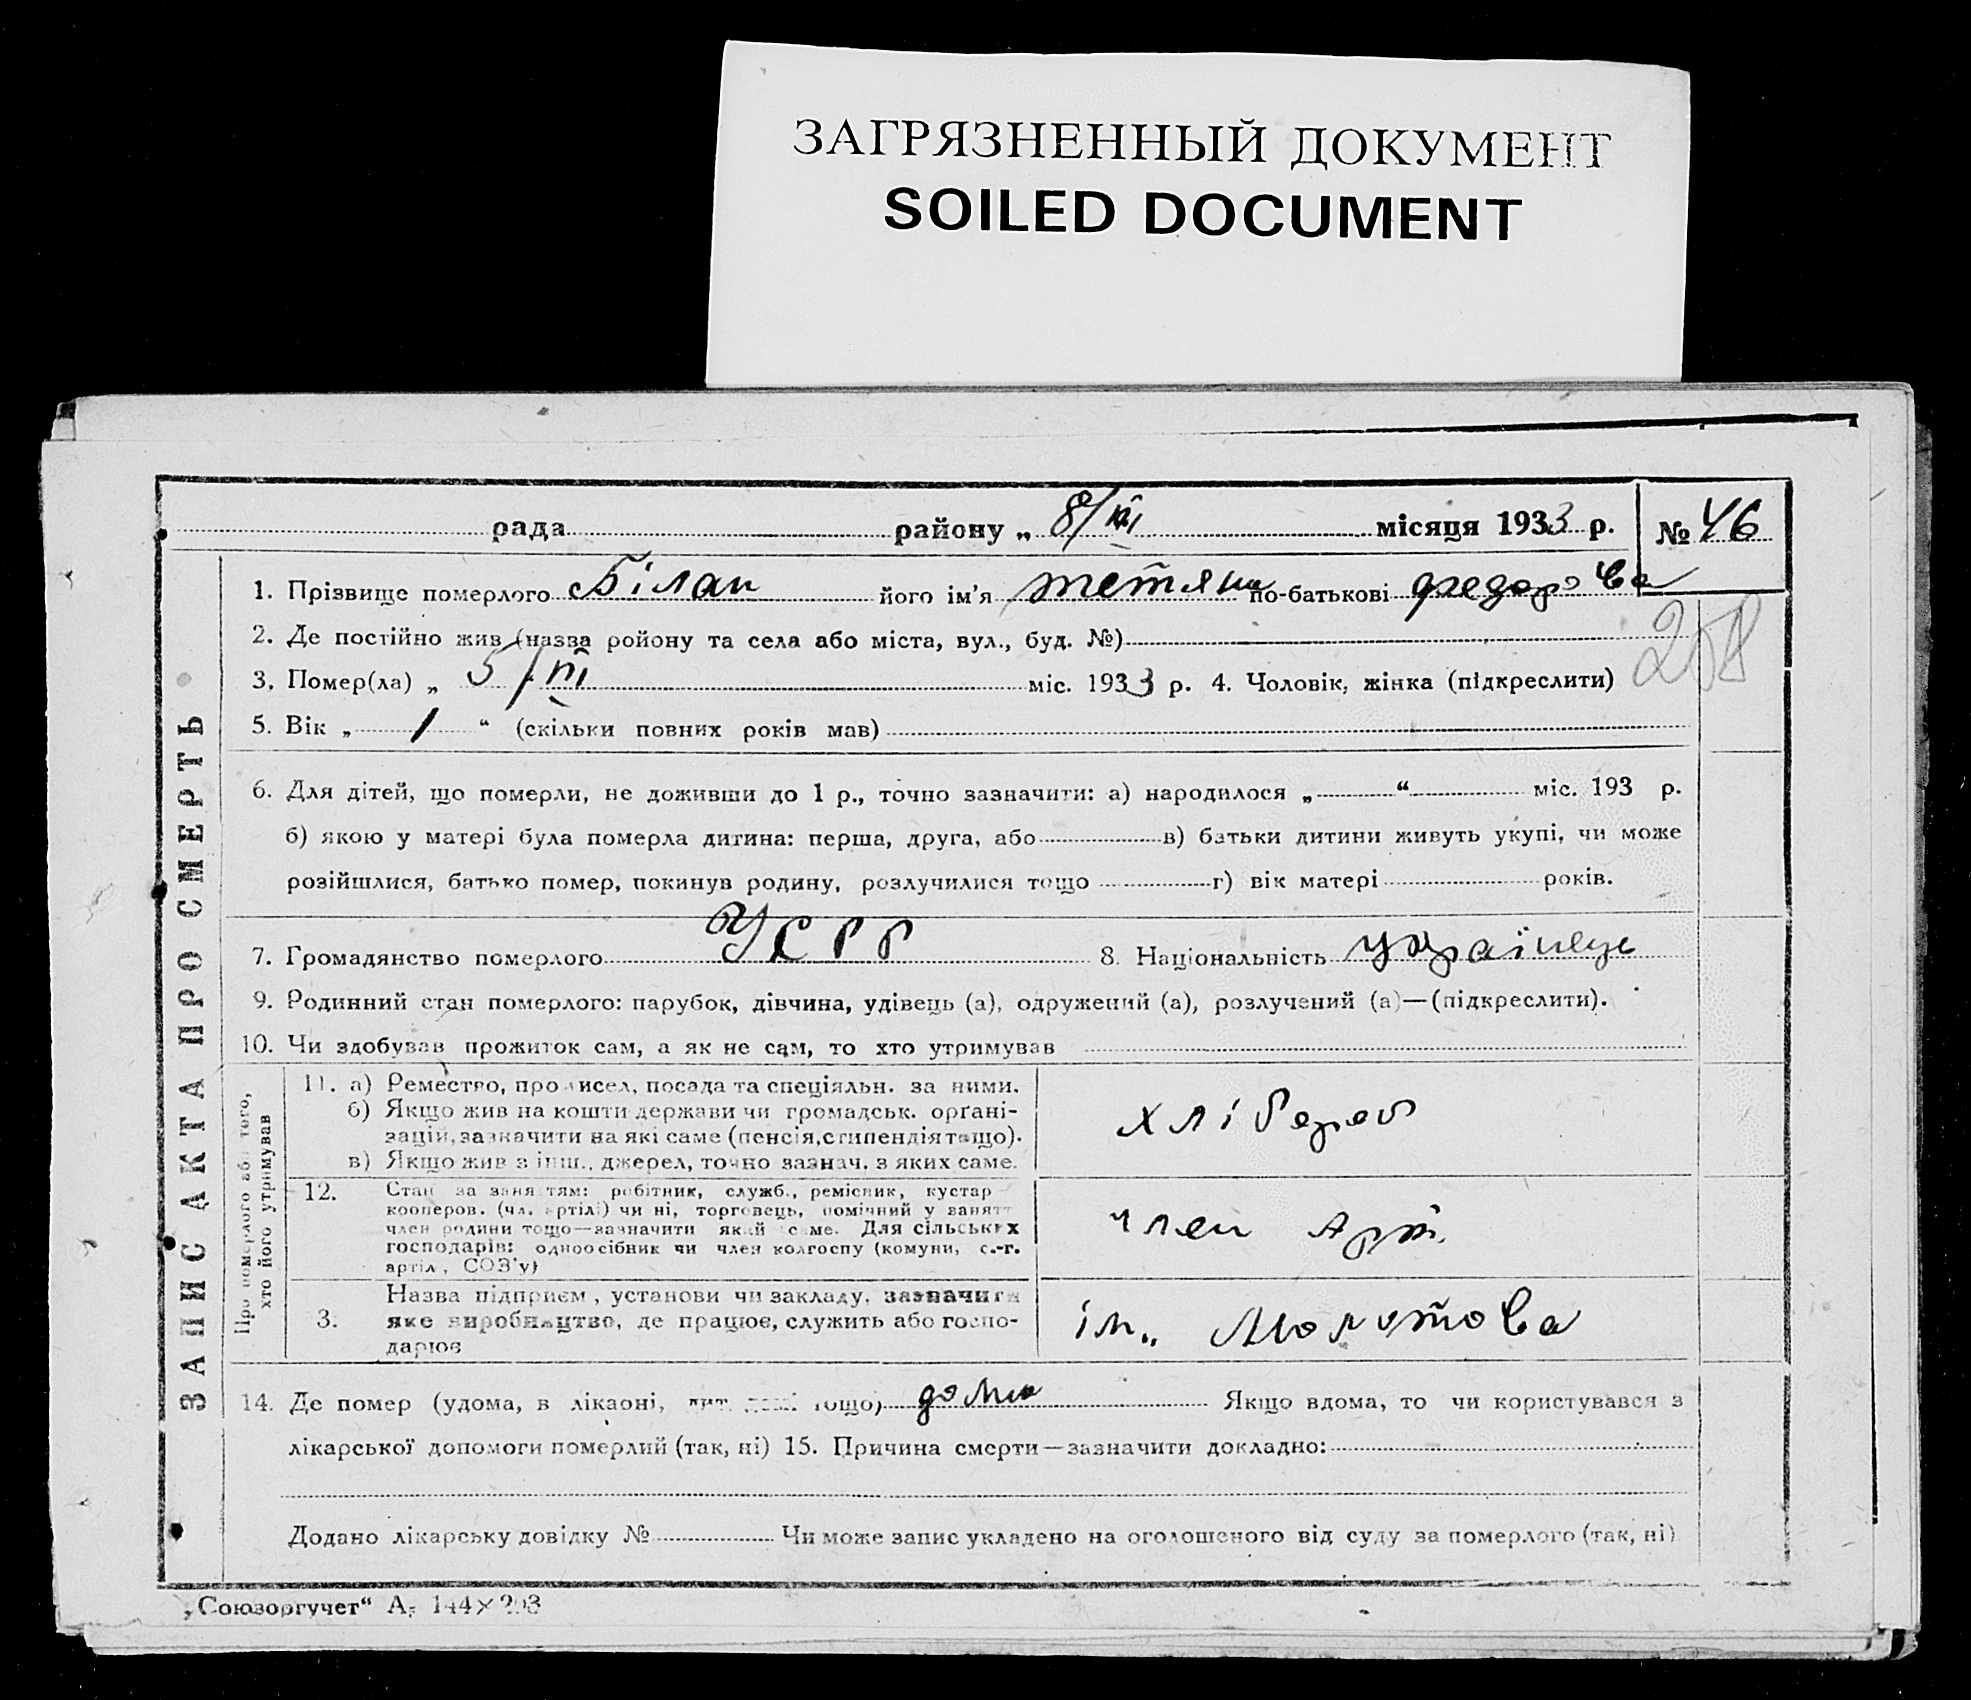 ЗАГРЯЗНЕННЫЙ ДОКУМЕНТ
SOILED DOCUMENT
рада району „ 8/III місяця 1933 р. № 46
1. Прізвище померлого Білан його ім'я Тетяна по-батькові Федорова
2. Де постійно жив (назва ройону та села або міста, вул., буд. №)
258
3. Помер(ла) „ 5/III міс. 1933 р. 4. Чоловік, жінка (підкреслити)
5. Вік „ 1 “ (скільки повних років мав)
6. Для дітей, що померли, не доживши до 1 р., точно зазначити: а) народилося „ “ міс. 193 р.
б) якою у матері була померла дитина: перша, друга, або в) батьки дитини живуть укупі, чи може
розійшлися, батько помер, покинув родину, розлучилися тощо г) вік матері років.
7. Громадянство померлого УСРР 8. Національність українец
9. Родинний стан померлого: парубок, дівчина, удівець (а), одружений (а), розлучений (а)—(підкреслити).
10. Чи здобував прожиток сам, а як не сам, то хто утримував
ЗАПИС АКТА ПРО СМЕРТЬ
Про померлого або того,
хто його утримував
11. а) Ремество, промисел, посада та спеціяльн. за ними.
б) Якщо жив на кошти держави чи громадськ. орґані-
зацій, зазначити на які саме (пенсія, стипендія тощо).
в) Якщо жив з інш., джерел, точно зазнач. з яких саме.
хлібороб
12. Стан за заняттям: робітник, служб., ремісник, кустар
кооперов. (чл. артілі) чи ні, торговець, помічний у занятт
член родини тощо—зазначити який саме. Для сільських
господарів: одноосібник чи член колгоспу (комуни, с.-г.
артіл, СОЗ'у)
член Арт.
3. Назва підприєм, установи чи закладу, зазначити
яке виробництво, де працює, служить або госпо-
дарює
ім. Молотова
14. Де помер (удома, в лікарні, дит. домі тощо) дома Якщо вдома, то чи користувався з
лікарської допомоги померлий (так, ні) 15. Причина смерти—зазначити докладно:
Додано лікарську довідку № Чи може запис укладено на оголошеного від суду за померлого (так, ні)
„Союзоргучет“ А₅ 144×203